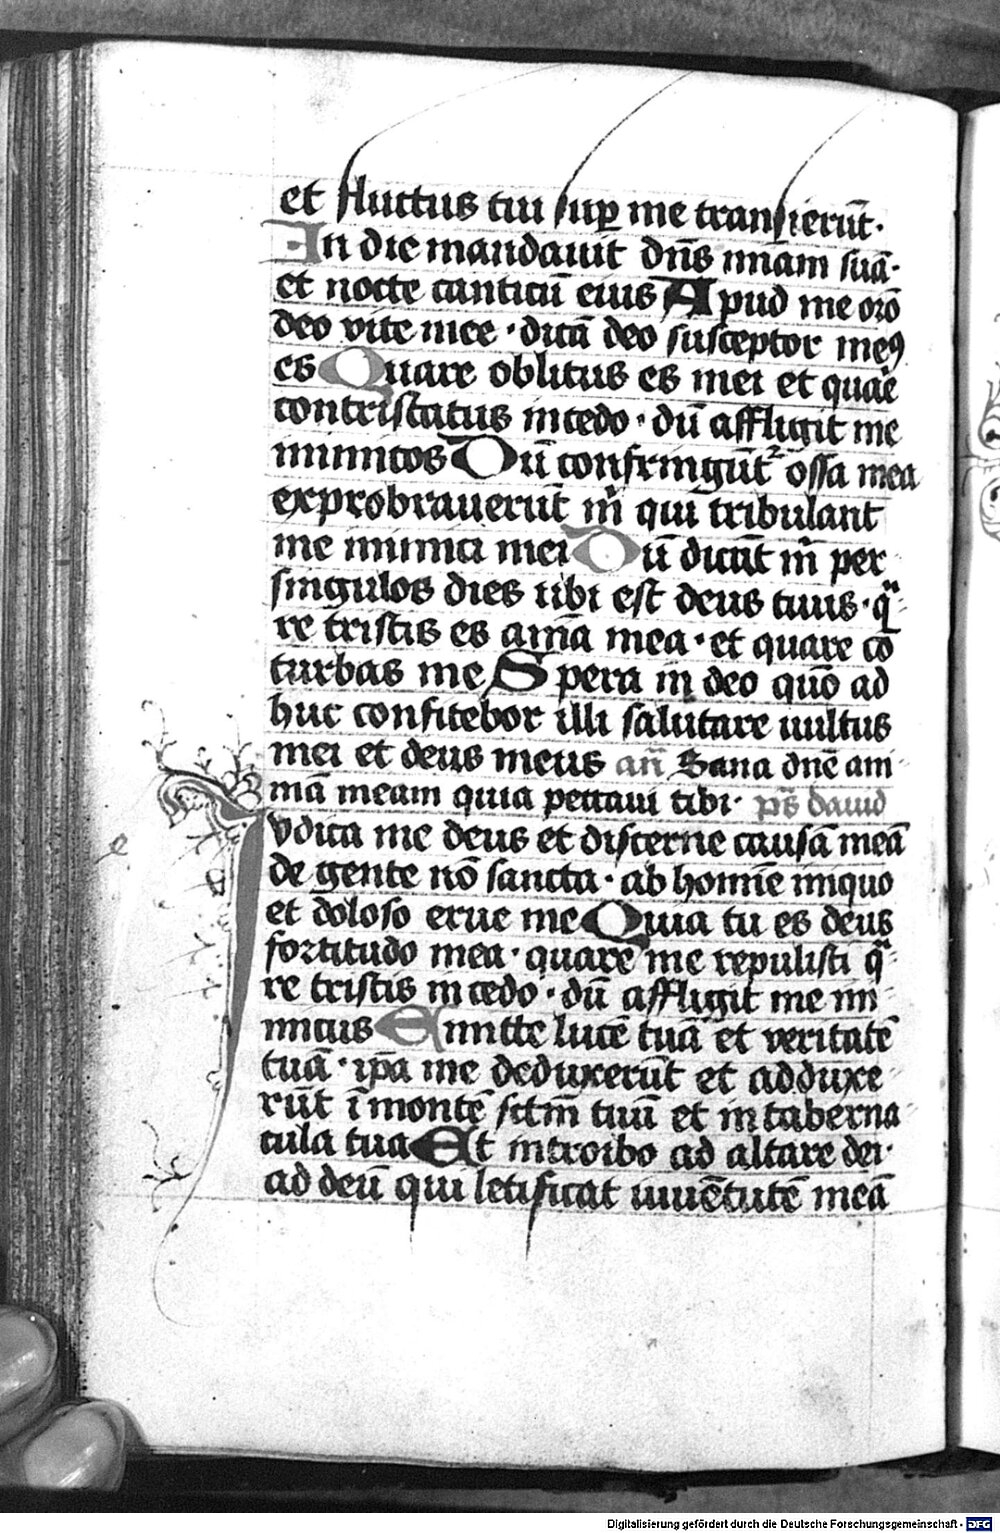 et fluctus tui sup me transierūt·
In die mandavit dn̄s miām suā·
et nocte canticū eius Apud me orō
deo vite mee · dicā deo susceptor meꝰ
es Quare oblitus es mei et quāe
contristatus incedo · dū affligit me
inimicos Dū confringūt᷑ ossa mea
exprobraverūt m̄ qui tribulant
me inimici mei Dū dicūt m̄ per
singulos dies ubi est deus tuus · q̄
re tristis es aīma mea · et quare cō
turbas me Spera in deo quō ad
huc confitebor illi salutare uultus
mei et deus meus an̄ Sana dn̄e ani
mā meam quia peccaui tibi· ps̄ dauid
Iudica me deus et discerne causā meā
de gente nō sancta · ab homīe iniquo
et doloso erue me Quia tu es deus
fortitudo mea · quare me repulisti q̄
re tristis incedo · dū affligit me ini
micus Emitte lucē tuā et veritatē
tuā · ip̄a me deduxerūt et adduxe
rūt ī montē sc̄tm̄ tuū et in taberna
cula tua Et introibo ad altare dei·
ad deū qui letificat iuuētutē meā
Digitalisierung gefördert durch die Deutsche Forschungsgemeinschaft - DFG